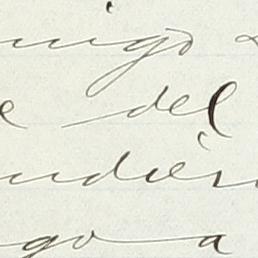 migo
e del
ndier
go a